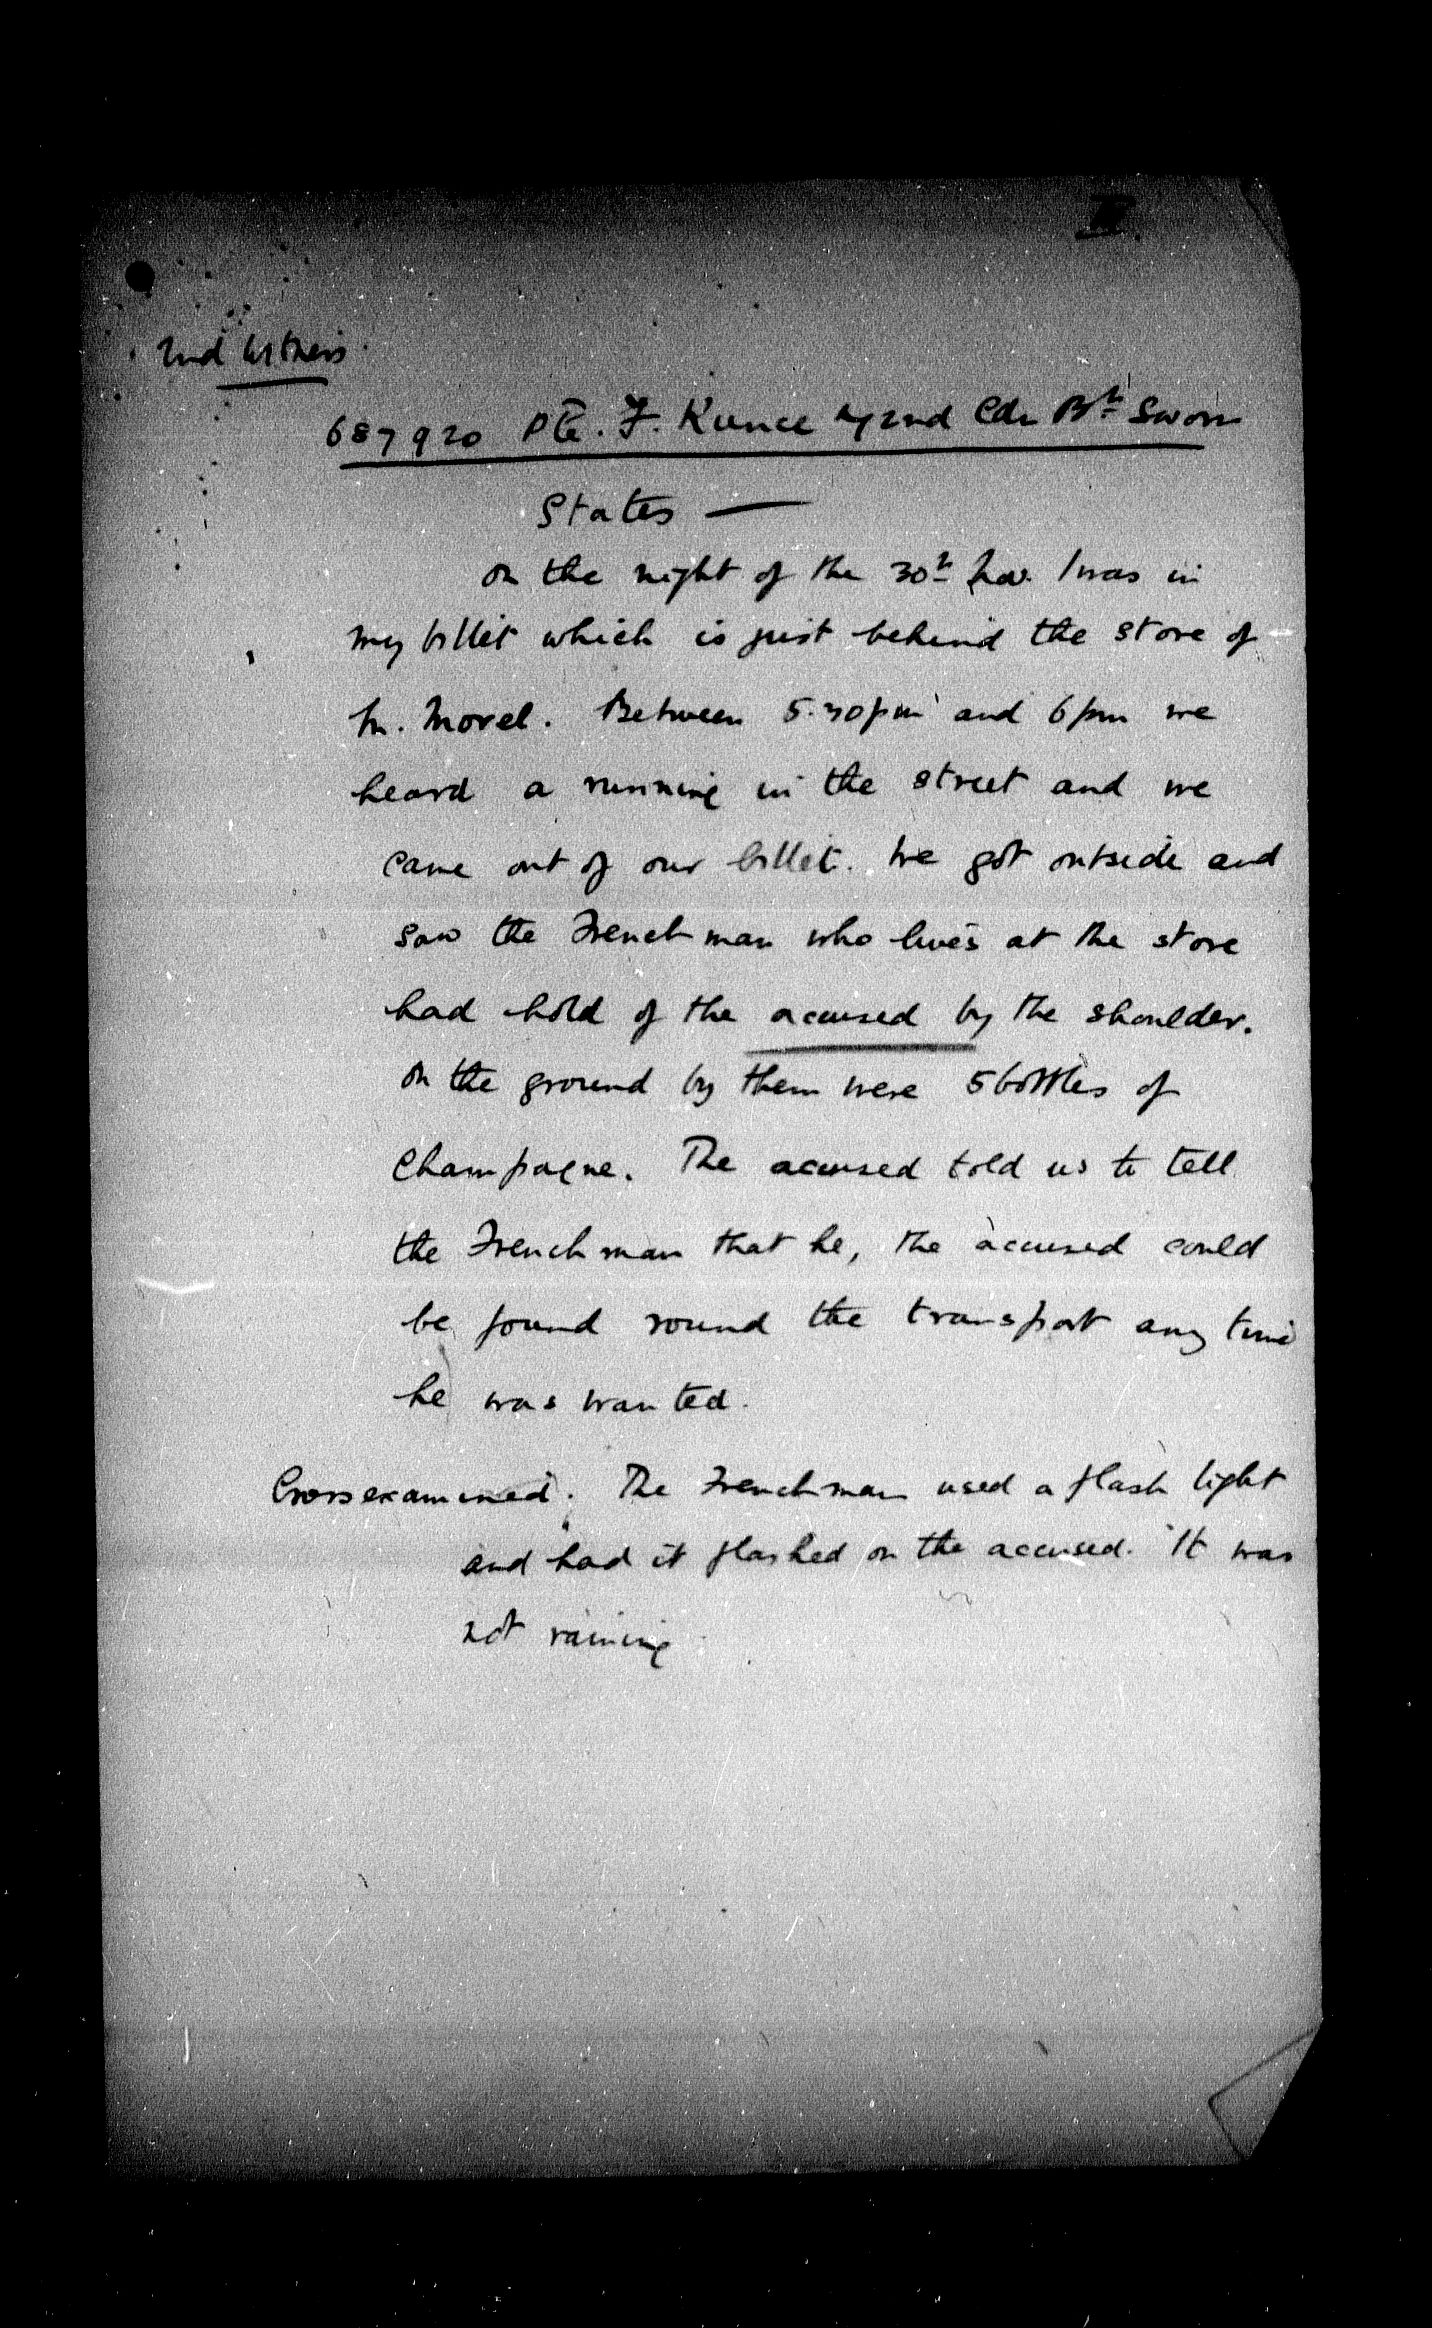 2nd Witness
687920 Pte. F. Kunce 72nd Cdn Bn Sworn
States —
On the night of the 30th Nov. I was in
my billet which is just behind the store of
M. Morel. Between 5.30pm and 6pm we
heard a running in the street and we
came out of our billet. We got outside and
saw the Frenchman who lives at the store
had hold of the accused by the shoulder.
On the ground by them were 5 bottles of
Champagne. The accused told us to tell
the Frenchman that he, the accused could
be found round the transport any time
he was wanted.
Cross examined. The Frenchman used a flash light
and had it flashed on the accused. It was
not raining